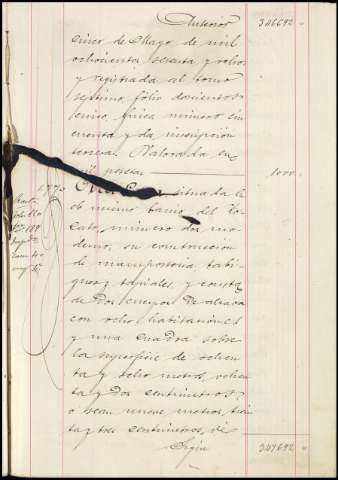 Anterior 346692
cinco de Mayo de mil
ochocientos sesenta y ocho
y registrada al tomo
septimo, folio doscientos
cinco, finca número cin
cuenta y la inscripción
tercera. Valorada en
mil pesetas 1000
1770 Otra Casa situada en
el mismo barrio del
número dos mo
derno, su construccion
de mamposteria tabi
ques y tapiales, y consta
de dos cuerpos de alzada
con ocho habitaciones
y una cuadra sobre
la superficie de ochen
ta y ocho metros, ochen
ta y dos centimetros
ó sean nueve metros, trein
ta y tres centimetros, de
Sigue 347692